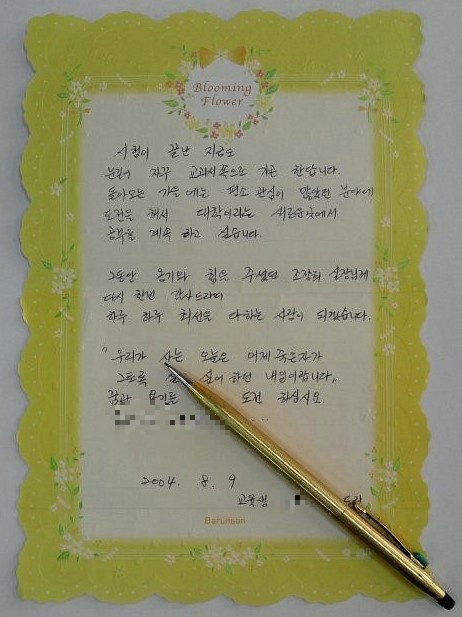 Blooming
Flower
시험이 끝난 지금도
눈길이 자꾸 교과서쪽으로 가곤 한답니다.
돌아오는 가을 에는 평소 관심이 많았던 분야에
도전을 해서 대학이라는 새로운곳에서
공부를 계속 하고 싶습니다.
그동안 용기와 힘을 주셨던 조장희 실장님께
다시 한번 감사드리며
하루 하루 최선을 다하는 사람이 되겠습니다.
"우리가 사는 오늘은 어제 죽은자가
그토록 싶어 하던 내일이랍니다"
꿈과 용기를 도전 하십시오.
2004. 8. 9
교육생 드림
Barunson